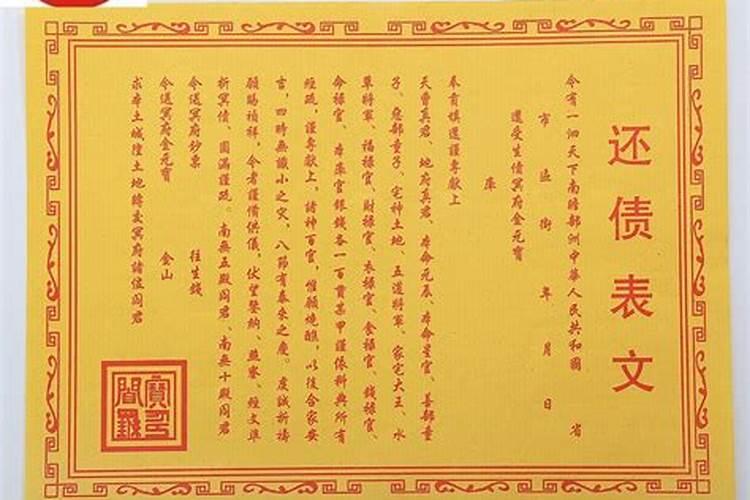 还债表文
今有一泗天下南瞻部洲中華人民共和國 省
市 區 街 年 月 日
還受生債冥府金元寶
庫
奉齎填還謹專献上
天曹真君、地府真君、本命元辰、本命星官、善部童
子、惡部童子、宅神土地、五道將軍、家宅大王、水
草將軍、福祿官、財祿官、衣祿官、食祿官、錢祿官、
命祿官、本庫官銀錢各一百貫某甲謹依科典所有
經疏，謹專献上，諸神百官，惟願燒醮，以後合家安
吉，四時無識小之災，八節有泰來之慶。虔誠祈禱
願賜禎祥，令者謹備供儀，伏望鑒納、燕寥、經文準
折冥債、圓滿謹疏。南無五殿阎君、南無十殿阎君
令送冥府鈔票 往生錢
令送冥府金元寶 金山
求本土城隍土地轉交冥府諸位阎君